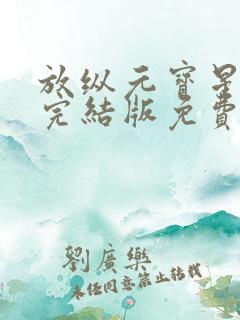 放纵元寶星
完結版免費
劉廣樂
未经同意禁止转载